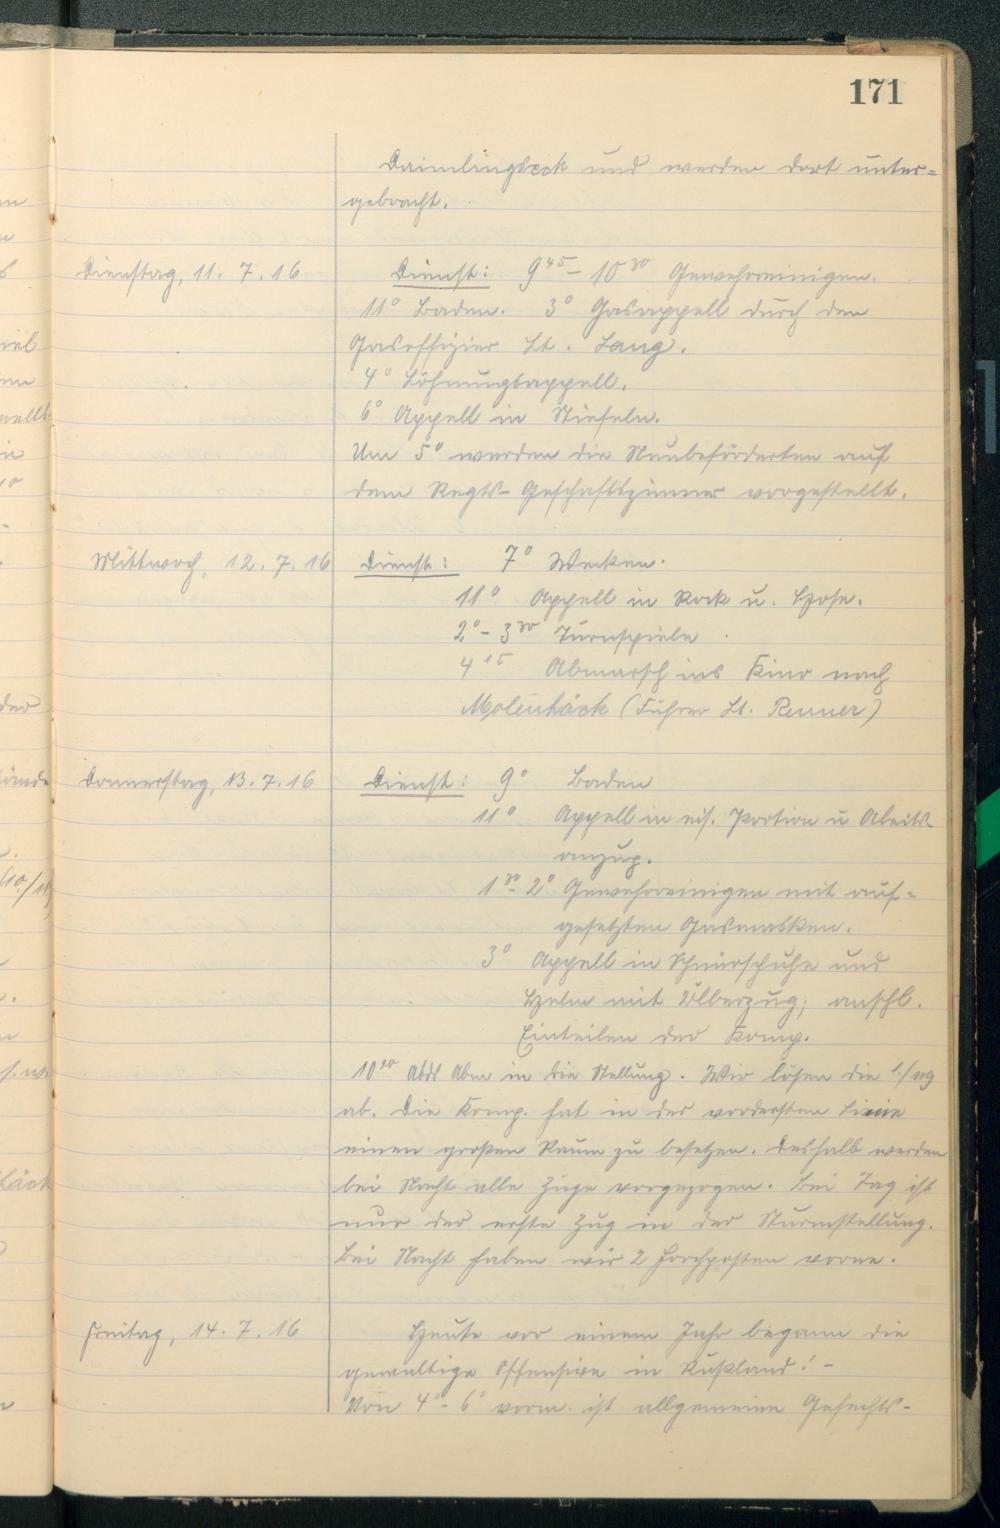 171
Daimlingseck und werden dort unter=
gebracht.
Dienstag, 11. 7. 16
Dienst: 9⁴⁵ - 10³⁰ Gewehrreinigen.
11⁰ Baden. 3⁰ Gasappell durch den
Gasoffizier Lt. Lang.
4⁰ Löhnungsappell.
6⁰ Appell in Stiefeln.
Um 5⁰ werden die Neubeförderten auf
dem Regts- Geschäftszimmer vorgestellt.
Mittwoch, 12. 7. 16
Dienst: 7⁰ Wecken.
11⁰ Appell in Rock u. Hose.
2⁰ - 3³⁰ Turnspiele
4¹⁵ Abmarsch ins Kino nach
Molenhöck (Führer Lt. Renner)
Donnerstag, 13. 7. 16
Dienst: 9⁰ Baden
11⁰ Appell in eis. Portion u Abeits-
anzug.
1³⁰ - 2⁰ Gewehrreinigen mit auf=
gesetzten Gasmasken.
3⁰ Appell in Schnürschuhe und
Helm mit Überzug; anschl.
Einteilen der Komp.
10²⁰ Abm in die Stellung. Wir lösen die
ab. Die Komp. hat in der vordersten Linie
einen großen Raum zu besetzen. Deshalb werden
bei Nacht alle Züge vorgezogen. Bei Tag ist
nur der erste Zug in der Sturmstellung.
Bei Nacht haben wir 2 Horchposten vorne.
Freitag, 14. 7. 16
Heute vor einem Jahr begann die
gewaltige Offensive in Rußland! -
Von 4⁰ - 6⁰ vorm. ist allgemeine Gefechts-